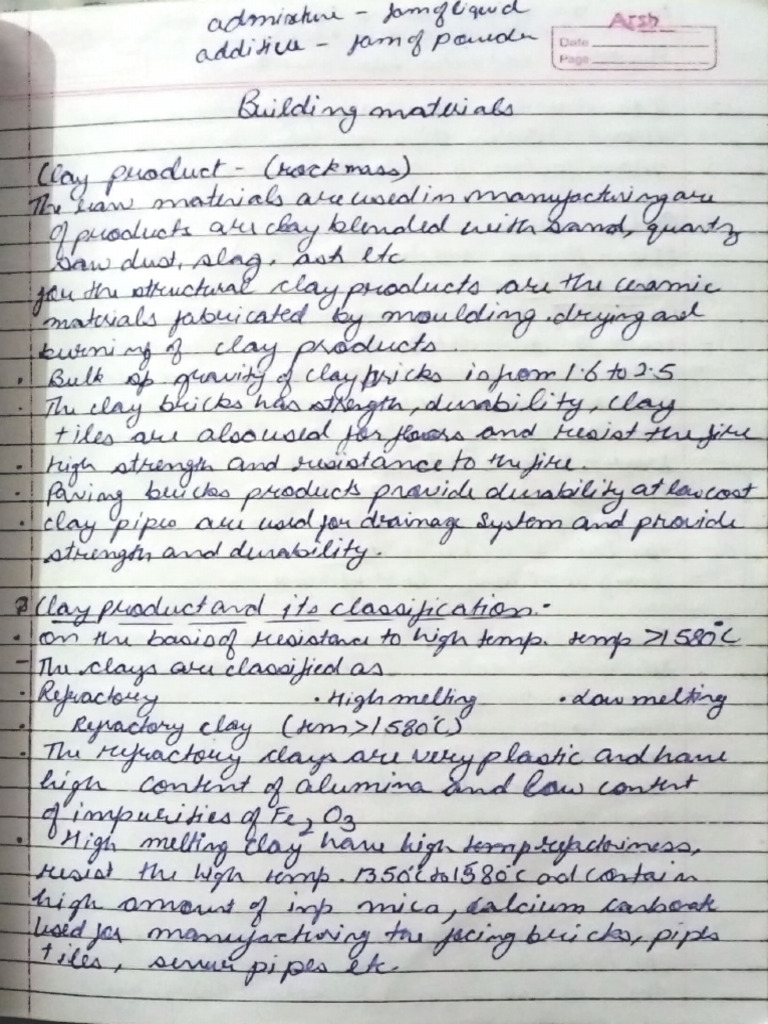 admixture - form of liquid
additive - form of powder
Arsh
Date
Page
Building materials
Clay product - (rock mass)
The raw materials are used in manufacturing are
of products are clay blended with sand, quartz
saw dust, slag, ash etc
for the structural clay products are the ceramic
materials fabricated by moulding, drying and
burning of clay products.
. Bulk sp gravity of clay bricks is from 1.6 to 2.5
. The clay bricks has strength, durability, clay
tiles are also used for floors and resist the fire
. High strength and resistance to the fire.
. Paving bricks products provide durability at low cost
. clay pipes are used for drainage system and provide
strength and durability.
Clay product and its classification.-
. On the basis of resistance to high temp. temp >1580°C
- The clays are classified as
. Refractory . High melting . Low melting
. Refractory clay (>1580°C)
. The refractory clays are very plastic and have
high content of alumina and low content
of impurities of Fe2O3
. High melting clay have high temp refractoriness,
resist the high temp. 1350°C to 1580°C and contain
high amount of imp mica, calcium carbonate
used for manufacturing the facing bricks, pipes
tiles, sewer pipes etc.